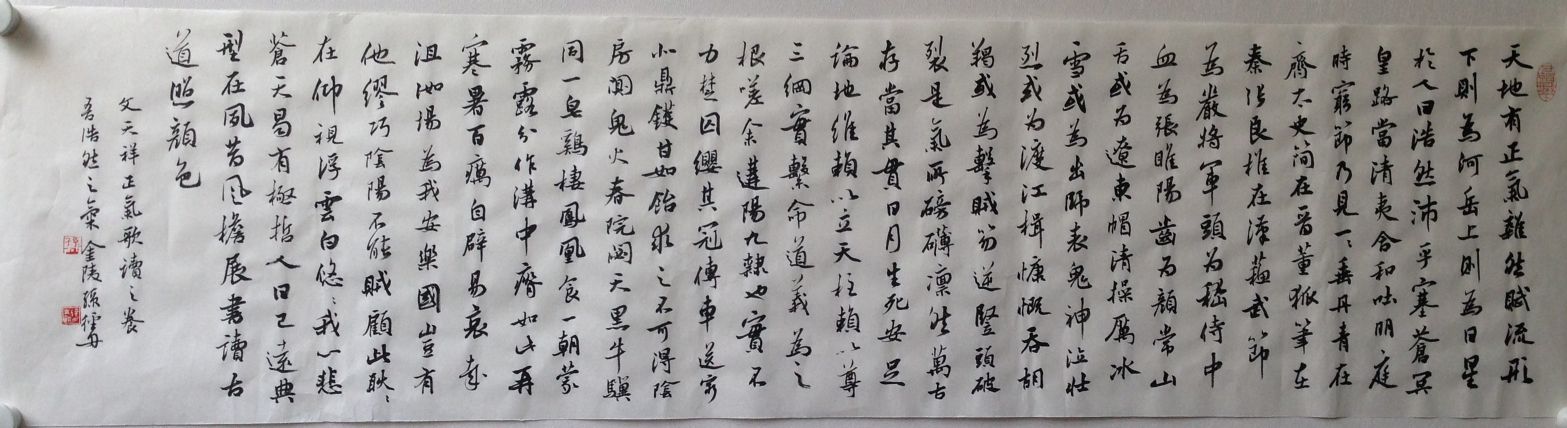 天地有正氣雜然賦流形
下則為河岳上則為日星
於人曰浩然沛乎塞蒼冥
皇路當清夷含和吐明庭
時窮節乃見一ミ垂丹青在
齊太史简在晋董狐筆在
秦張良椎在漢蘇武節
為嚴將軍頭为嵇侍中
血為張睢陽齒为顏常山
舌或为遼東帽清操厲冰
雪或為出師表鬼神泣壯
烈或为渡江楫慷慨吞胡
羯或為擊賊笏逆豎頭破
裂是氣所磅礴凛然萬古
存當其貫日月生死安足
論地維賴以立天柱賴以尊
三綱實繫命道義為之
根嗟余遘陽九隸也實不
力楚囚纓其冠傳車送窮
北鼎鑊甘如飴求之不可得陰
房闃鬼火春院閟天黑牛驥
同一皂鷄棲鳳凰食一朝蒙
霧露分作溝中瘠如此再
寒暑百癘自辟易哀哉
沮洳場為我安樂國豈有
他繆巧陰陽不能賊顧此耿ミ
在仰視浮雲白悠ミ我心悲
蒼天曷有極哲人日已遠典
型在夙昔风檐展書讀古
道照顏色
文天祥正氣歌讀之養
吾浩然之氣金陵孫